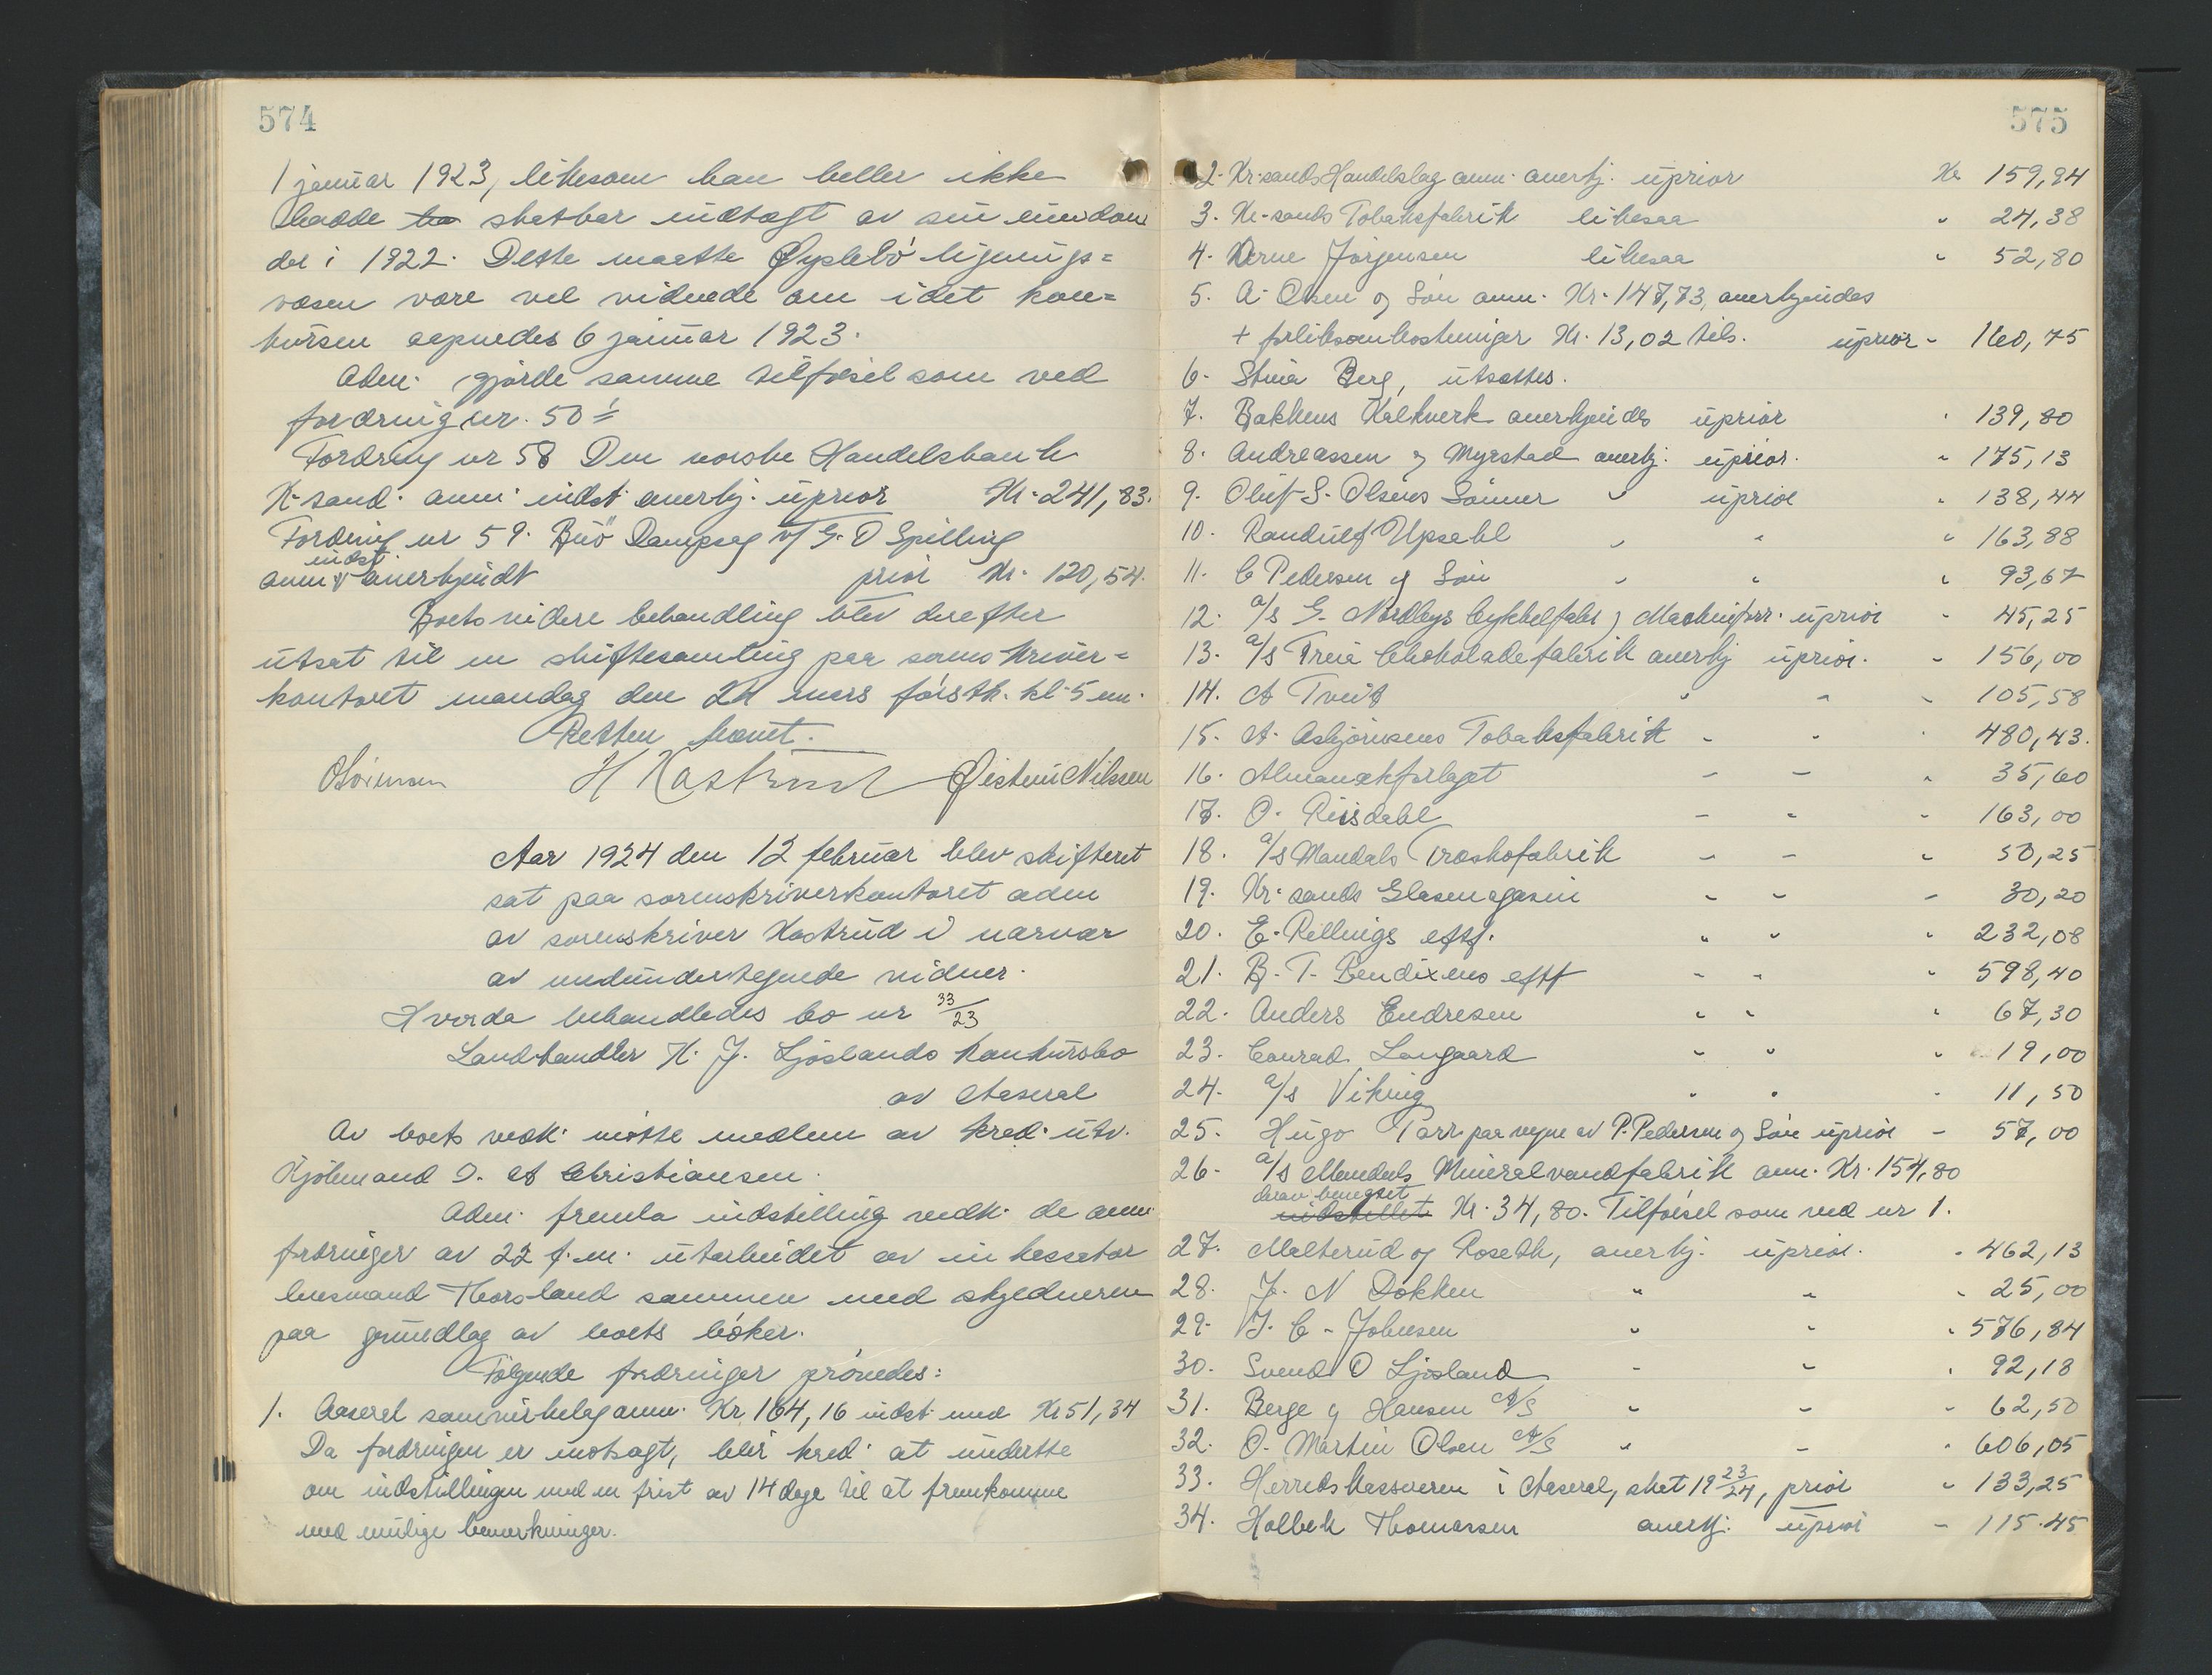 574
1 januar 1923, likesom han heller ikke
hadde ha skatbar indtægt av sin eiendom
der i 1922. Dette maatte Øyslebö lignings=
væsen være vel vidende om idet kon=
kursen aapnedes 6 januar 1923.
Adm. gjorde samme tilförsel som ved
fordring nr. 50.
Fordring nr 58 Den norske Handelsbank
K-sand. anm. indst. anerkj. uprior Kr. 241,83.
Fordring nr 59. Buö Dampsag v/ G. O Spilling
anm indst. anerkjendt prior Kr. 120,54.
Boets videre behandling blev derefter
utsat til en skiftesamling paa sorenskriver=
kontoret mandag den 24 mars förstk. kl. 5 em.
Retten hævet.
OSörensen H Kastrud Øistein Nilssen
Aar 1924 den 12 februar blev skifteret
sat paa sorenskriverkontoret adm
av sorenskriver Kastrud i nærvær
av medundertegnede vidner.
Hvorda behandledes bo nr 33/23
Landhandler K. J. Ljöslands konkursbo
av Aaseral
Av boets vedk. mötte medlem av kred. utv.
Kjöbmand O. A Christiansen.
Adm. fremla indstilling vedk. de anm.
fordringer av 22 f. m. utarbeidet av inkassator
lensmand Thorsland sammen med skyldneren
paa grundlag av boets böker.
Fölgende fordringer prövedes:
1. Aaseral samvirkelag anm. Kr 164,16 indst. med Kr 51,34
Da fordringen er motsagt, blir kred. at underrette
om indstillingen med en frist av 14 dage til at fremkomme
med mulige bemerkninger.
575
2. Kr.sands Handelslag anm. anerkj. uprior Kr 159,94
3. Kr.sands Tobaksfabrik likesaa " 24,38
4. Arne Jörgensen likesaa " 52,80
5. A. Olsen og Sön anm. Kr. 147,73, anerkjendes
+ forliksomkostninger Kr. 13,02 tils. uprior - 160,75
6. Stina Berg, utsættes.
7. Bakkens Kalkverk anerkjendes uprior " 139,80
8. Andreassen og Myrstad anerkj. uprior. " 175,13
9. Oluf S. Olsens Sönner " uprior " 138,44
10. Randulf Upsahl " " " 163,88
11. C Pedersen og Sön " " " 93,67
12. a/s G. Nordbys Cykkelfabr og Maskinforr. uprior - 45,25
13. a/s Freia Chokoladefabrik anerkj uprior. - 156,00
14. A Tveit " " - 105,58
15. A. Asbjörnsens Tobaksfabrik - " " 480,43.
16. Almanakforlaget - - " 35,60
17. O. Risdahl - " - 163,00
18. a/s Mandals Træskofabrik - - " 50,25
19. Kr. sands Glasmagasin - - - 30,20
20. E. Rellings eftf. " " " 232,08
21. B. T. Bendixens eftf - - " 598,40
22. Anders Endresen " " " 67,30
23. Conrad Langaard " " " 19,00
24. a/s Viking " " - 11,50
25. Hugo Tarr paa vegne av P. Pedersen og Sön uprior - 57,00
26. a/s Mandals Mineralvandfabrik anm. Kr. 154,80
derav benegtet indstillet Kr. 34,80. Tilförsel som ved nr 1.
27. Malterud og Roseth, anerkj. uprior. " 462,13
28. J. N Dokken " " " 25,00
29. J. C. Johnsen " " " 576,84
30. Svend O Ljosland - " " 92,18
31. Berge og Hansen A/S " - - 62,50
32. O. Martin Olsen A/S " - " 606,05
33. Herredskassereren i Aaseral, skat 19 23/24, prior " 133,25
34. Holbek Thomassen anerkj. uprior - 115.45